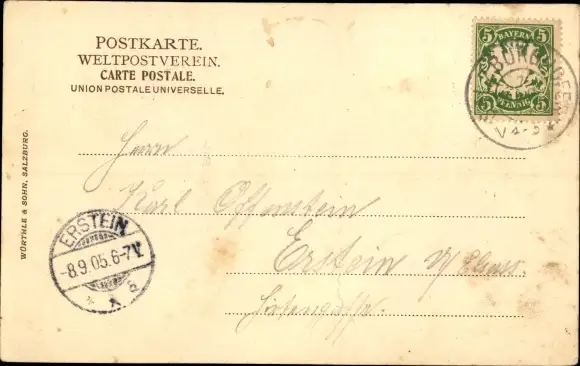 POSTKARTE.
WELTPOSTVEREIN.
CARTE POSTALE.
UNION POSTALE UNIVERSELLE.
5 BAYERN 5
5 PFENNIG 5
WÜRTHLE & SOHN, SALZBURG.
Herrn
Karl Offenstein
Erstein
ERSTEIN
-8.9.05.6-7V.